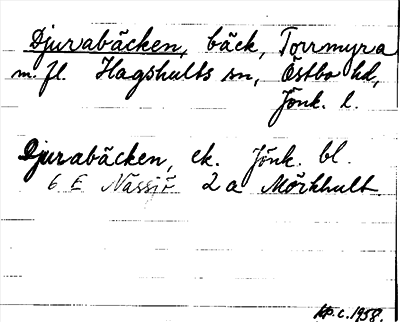 Djurabäcken, bäck, Torrmyra
m. fl. Hagshults sn, Östbo hd,
Jönk. l.
Djurabäcken, ek. Jönk. bl.
6 E Nässjö 2 a Mörkhult
1958.